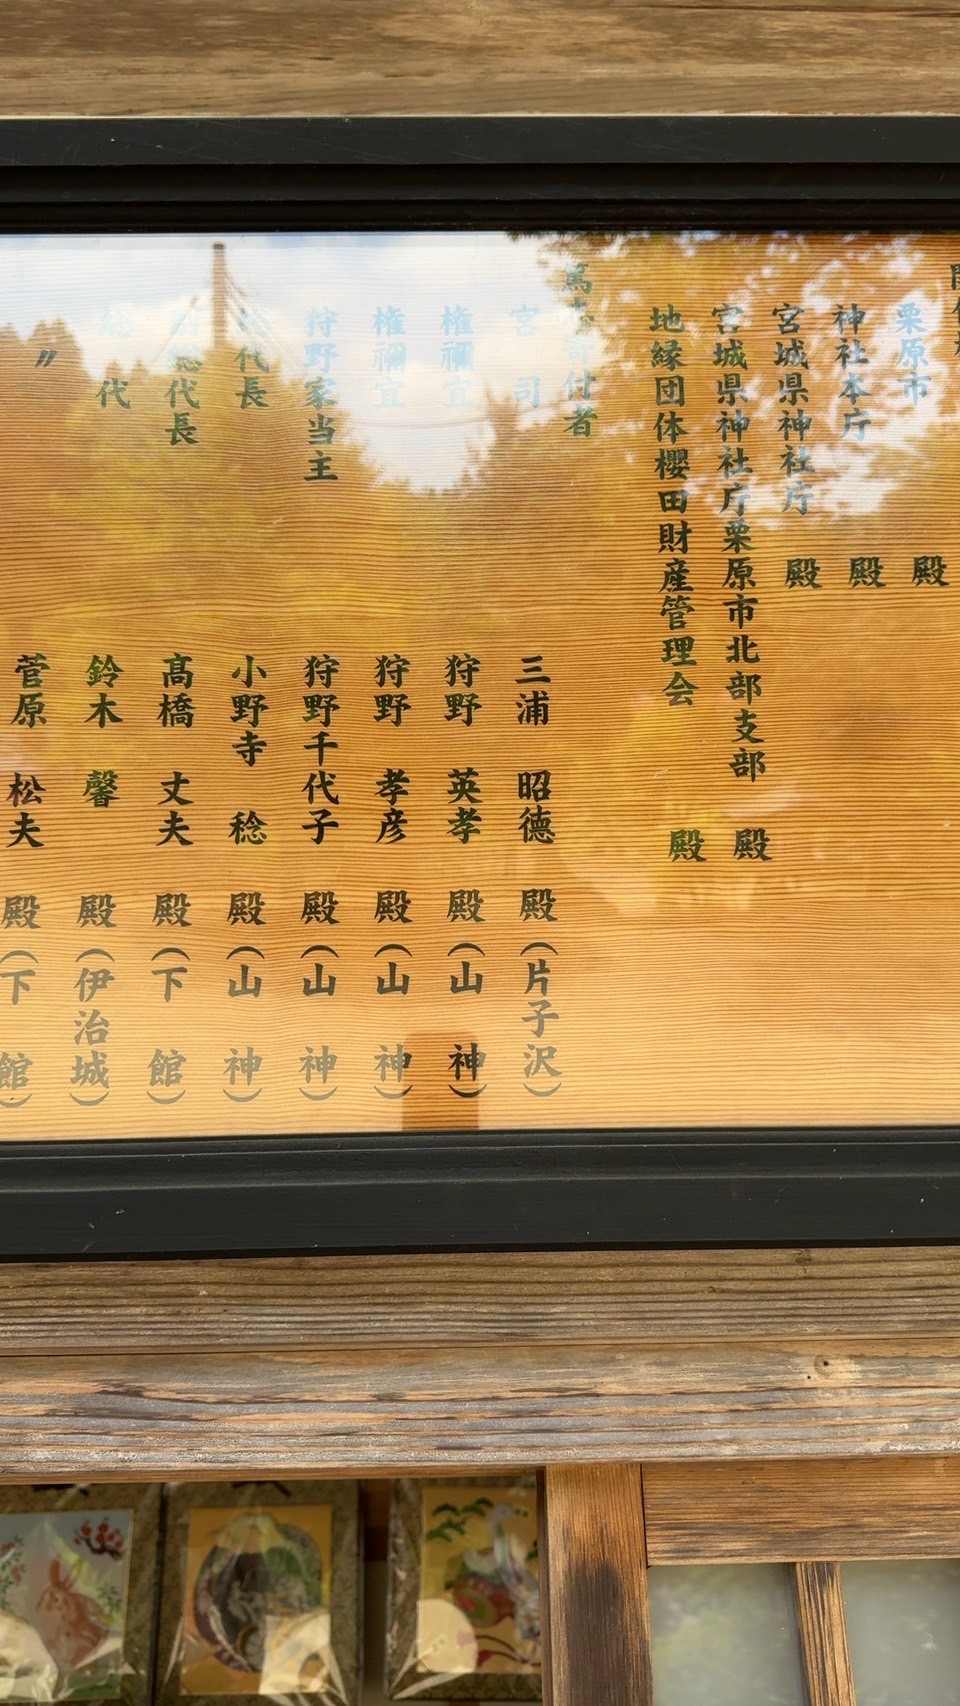 栗原市 殿
神社本庁 殿
宮城県神社庁 殿
宮城県神社庁栗原市北部支部 殿
地縁団体櫻田財産管理会 殿
篤志寄付者
宮司 三浦 昭德 殿（片子沢）
権禰宜 狩野 英孝 殿（山神）
権禰宜 狩野 孝彦 殿（山神）
狩野家当主 狩野千代子 殿（山神）
総代長 小野寺 稔 殿（山神）
副総代長 髙橋 丈夫 殿（下館）
総代 鈴木 馨 殿（伊治城）
〃 菅原 松夫 殿（下館）